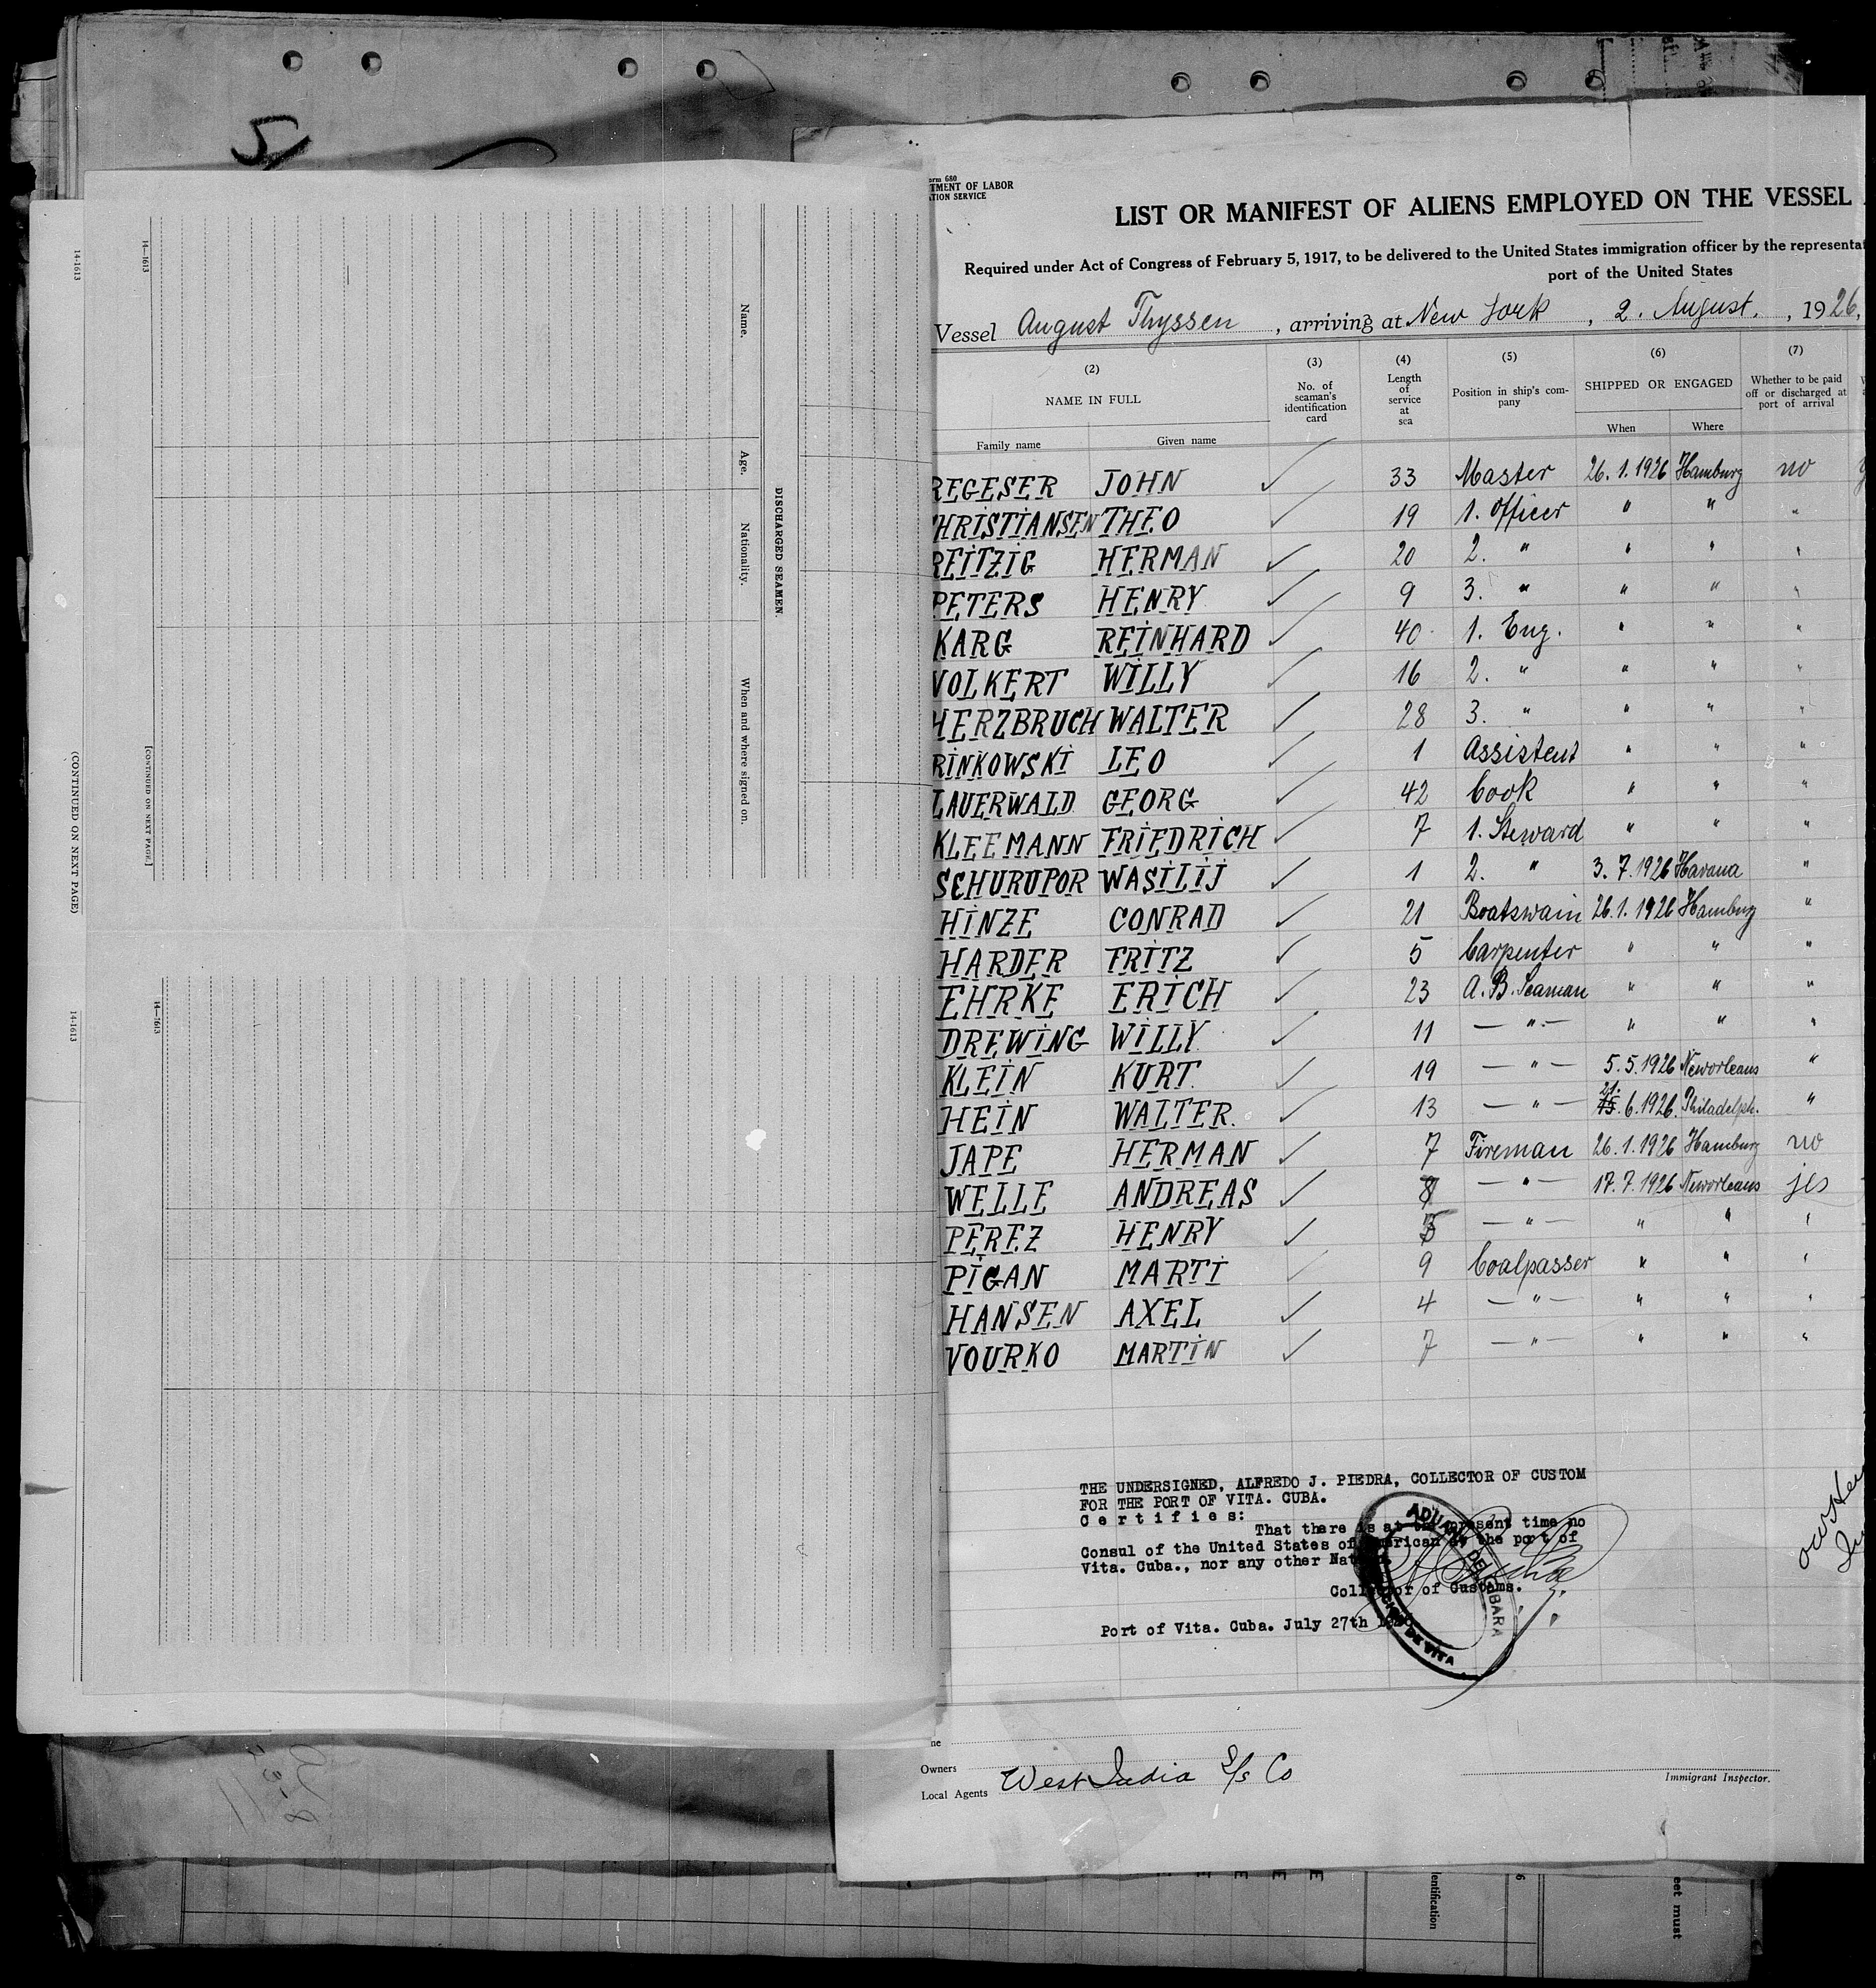 5
14-1613
14-1613
Name.
Age.
Nationality.
When and where signed on.
DISCHARGED SEAMEN.
[CONTINUED ON NEXT PAGE]
(CONTINUED ON NEXT PAGE)
14-1613
14-1613
orm 680
TMENT OF LABOR
ATION SERVICE
LIST OR MANIFEST OF ALIENS EMPLOYED ON THE VESSEL
Required under Act of Congress of February 5, 1917, to be delivered to the United States immigration officer by the representat
port of the United States
Vessel August Thyssen, arriving at New York, 2. August., 1926,
(2) (3) (4) (5) (6) (7)
NAME IN FULL No. of seaman's identification card Length of service at sea Position in ship's company SHIPPED OR ENGAGED Whether to be paid off or discharged at port of arrival
Family name Given name When Where
REGESER JOHN ✓ 33 Master 26.1.1926 Hamburg no
HRISTIANSEN THEO ✓ 19 1. Officer " " "
REITZIG HERMAN ✓ 20 2. " " " "
PETERS HENRY ✓ 9 3. " " " "
KARG REINHARD ✓ 40 1. Eng. " " "
VOLKERT WILLY ✓ 16 2. " " " "
HERZBRUCH WALTER ✓ 28 3. " " " "
RINKOWSKI LEO ✓ 1 Assistent " " "
LAUERWALD GEORG ✓ 42 Cook " " "
KLEEMANN FRIEDRICH ✓ 7 1. Steward " " "
SCHURUPOR WASILIJ ✓ 1 2. " 3.7.1926 Havana "
HINZE CONRAD ✓ 21 Boatswain 26.1.1926 Hamburg "
HARDER FRITZ ✓ 5 Carpenter " " "
EHRKE ERICH ✓ 23 A.B. Seaman " " "
DREWING WILLY ✓ 11 — " — " " "
KLEIN KURT ✓ 19 — " — 5.5.1926 Neworleans "
HEIN WALTER ✓ 13 — " — 21.6.1926. Philadelph. "
JAPE HERMAN ✓ 7 Fireman 26.1.1926 Hamburg no
WELLE ANDREAS ✓ 8 — " — 17.7.1926 Neworleans jes
PEREZ HENRY ✓ — " — " " "
PIGAN MARTI ✓ 9 Coalpasser " " "
HANSEN AXEL ✓ 4 — " — " " "
VOURKO MARTIN ✓ 7 — " — " " "
THE UNDERSIGNED, ALFREDO J. PIEDRA, COLLECTOR OF CUSTOM
FOR THE PORT OF VITA. CUBA.
Certifies:
That there is at the present time no
Consul of the United States of American at the port of
Vita. Cuba., nor any other Nat
Collector of Customs.
Port of Vita. Cuba. July 27th
ADUANA DE GIBARA
DE VITA
Owners
Local Agents West India S/s Co
Immigrant Inspector.
entification
eet must